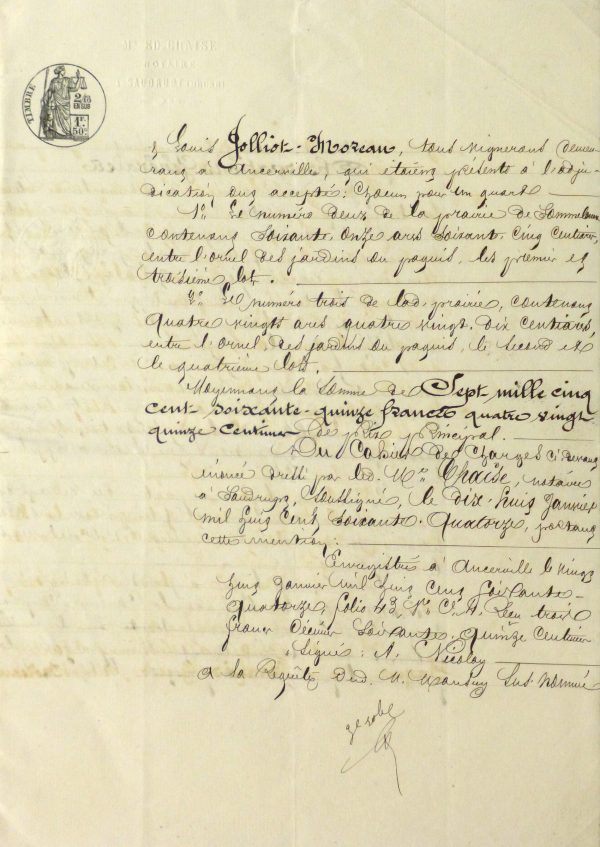 Me ED. CHAISE
NOTAIRE
A SAUDRUPT
TIMBRE
2/10
EN SUS
1F.
50c
Louis Jolliot-Mozeau, tous vignerons demeu-
rant à Ancerville, qui étaient présents à l'adju-
dication, ont accepté: Chacun pour un quart
1o. Le numéro deux de la prairie de Sommelonne
contenant soixante-onze ares soixante cinq centiares,
entre l'ornel des jardins du paquis, les premier et
troisième lots.
2o. Le numéro trois de lad. prairie, contenant
quatre vingts ares quatre vingt-dix centiares,
entre l'ornel, des jardins du paquis, le second et
le quatrième lots.
Moyennant la somme de Sept mille cinq
cent-soixante-quinze francs quatre vingt
quinze centimes de prix principal.
Du Cahier des Charges ci devant
énoncé dressé par led. Me. Chaise, notaire
à Saudrupt, soussigné, le dix-huit Janvier
mil huit cent soixante-quatorze, portant
cette mention:
Enregistré à Ancerville le vingt
huit Janvier mil huit cent soixante-
quatorze, folio 43, Vo. C. 1. Reçu trois
francs Décimes soixante-quinze centimes
Signé: A. Nicolay
A la Requête dud. M. Mansuy sus-nommé